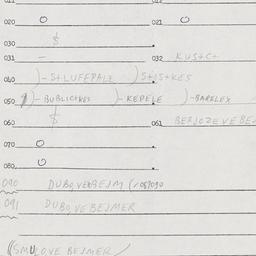 020 O 021 O
030 $
031 – 032 KUS+C+
040 )-S+LUFFPALE )S+JS+KES
050 )-BUBLIC+KES )-KEPELE )-BARELEX
060 $ 061 BERJOZE VE BEJ
070 O
080 O
090 DUBO,VE BEJM
091 DUBO,VE BEJMER
(SMULOVE BEJMER/